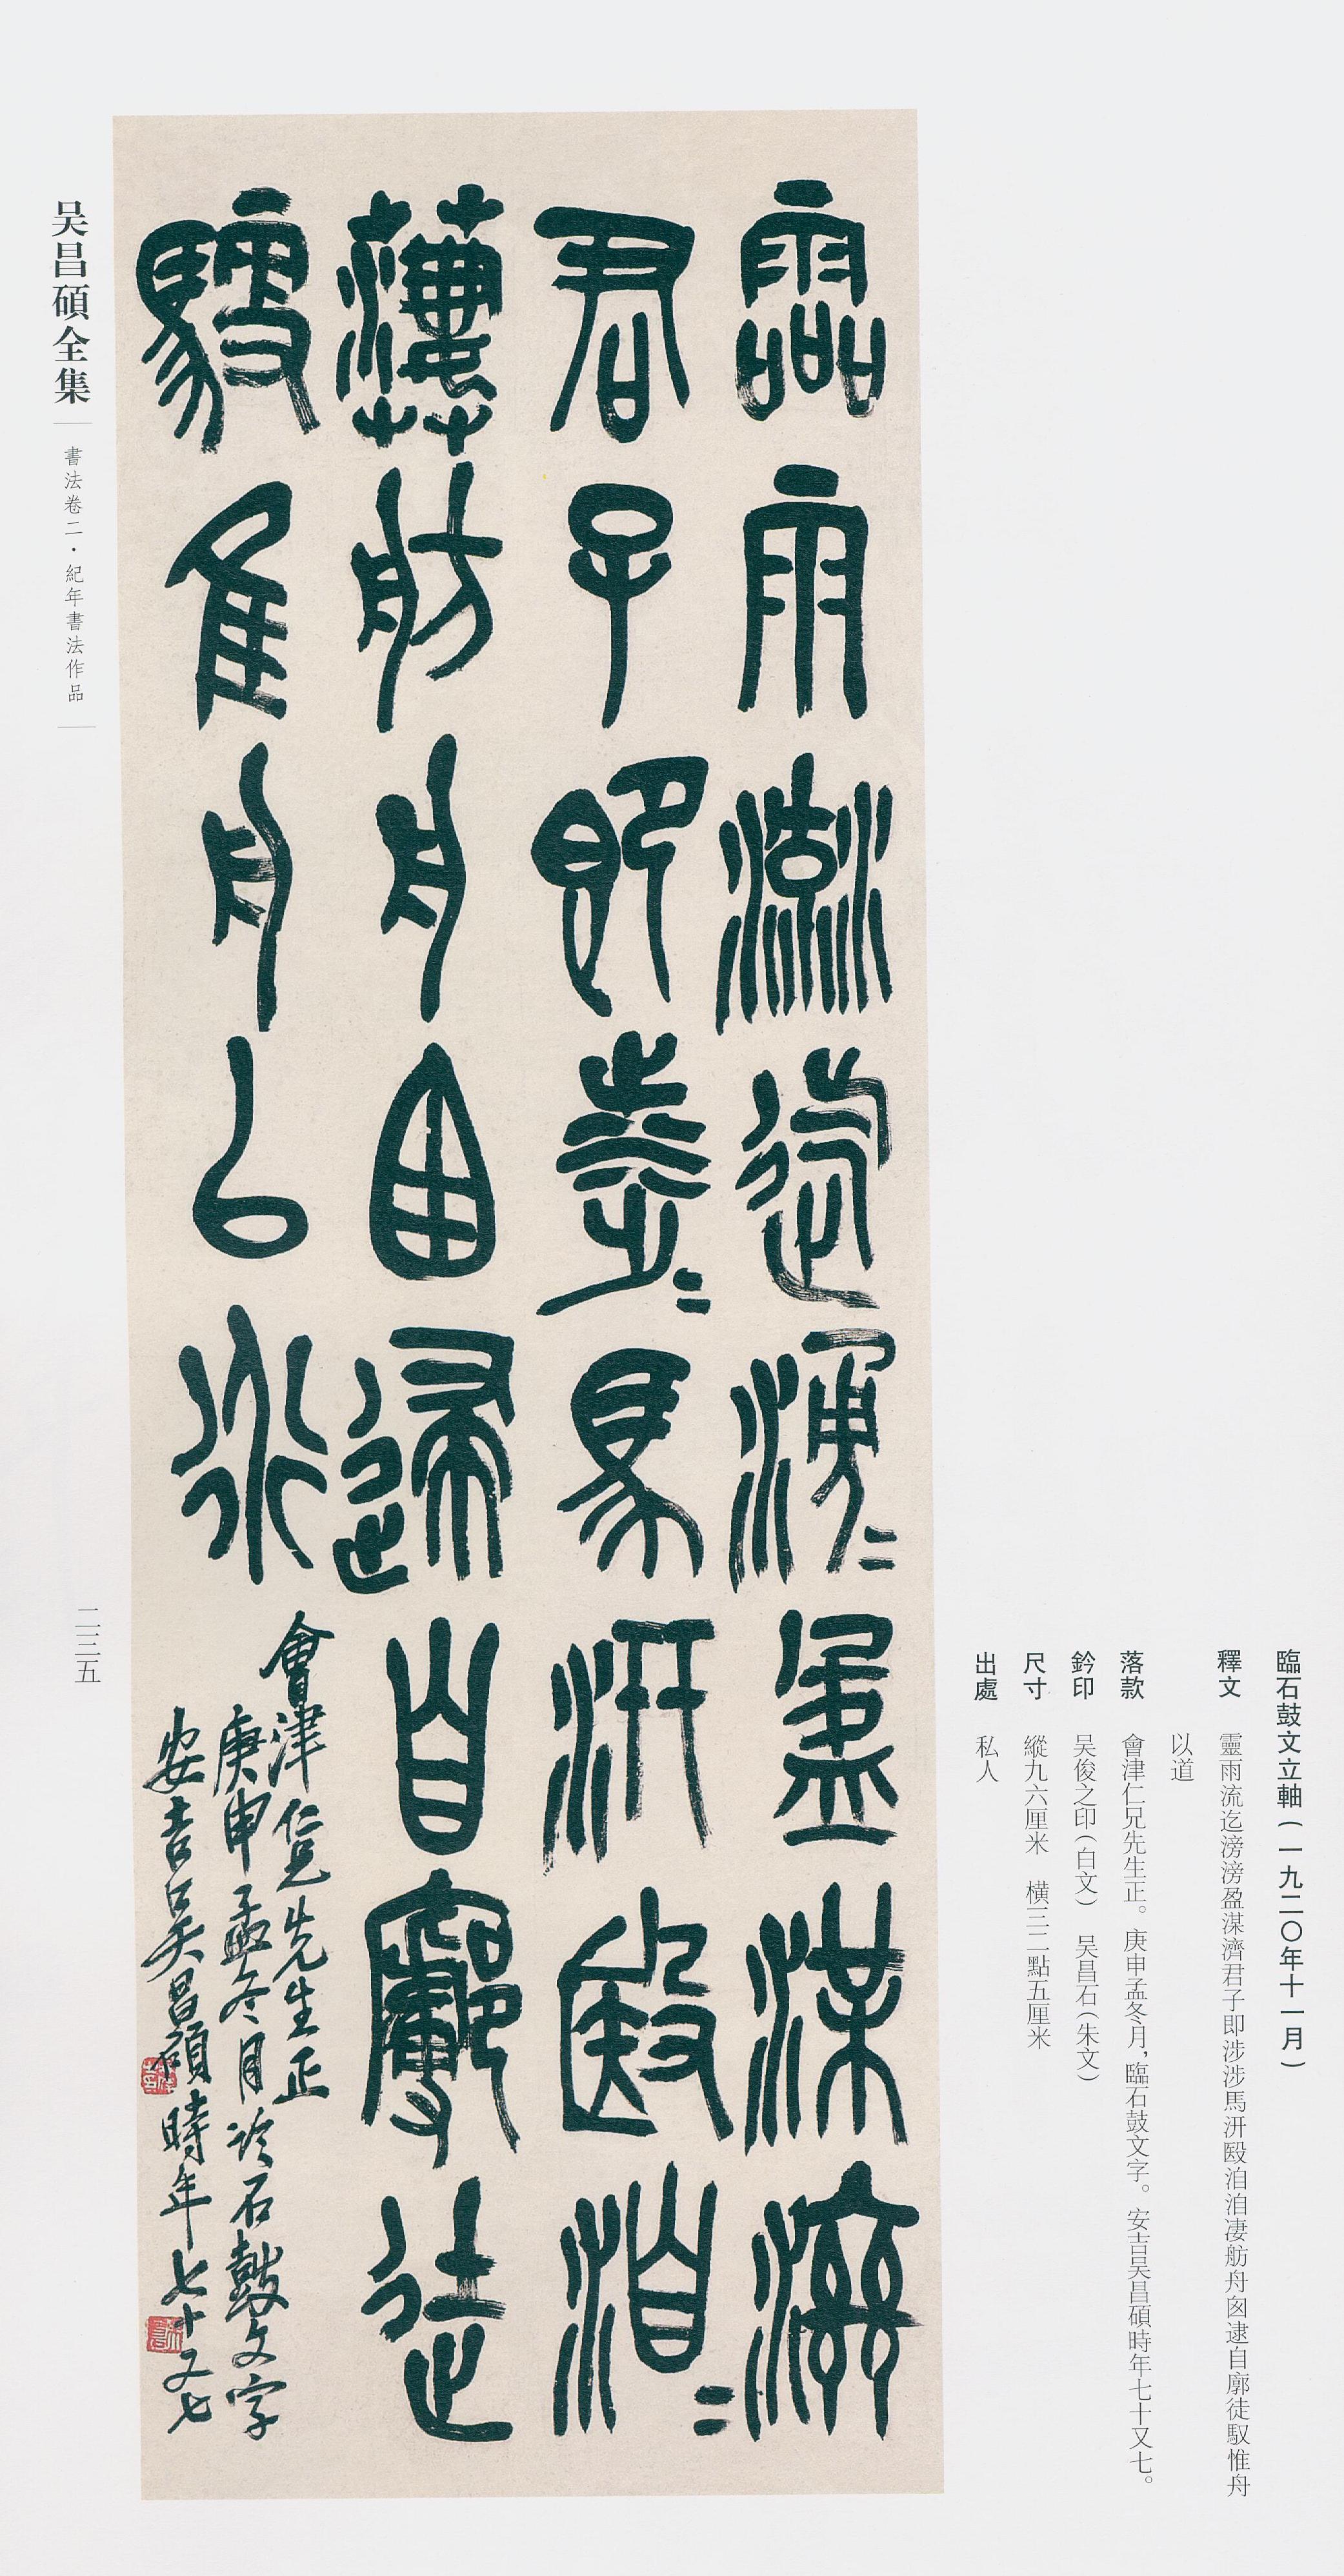 臨石鼓文立軸(一九二〇年十一月)
釋文 靈雨流迄滂滂盈渫濟君子即涉涉馬汧殹洎洎凄舫舟囪逮自廓徒馭惟舟
以道
落款 會津仁兄先生正。庚申孟冬月,臨石鼓文字。安吉吴昌碩時年七十又七。
鈐印 吴俊之印(白文) 吴昌石(朱文)
尺寸 縱九六厘米 橫三二點五厘米
出處 私人
霝雨流迄湧〻盈渫濟
君子即涉〻馬汧殹洎〻
萋舫舟囪逮自廓徒
馭隹舟以道
會津仁兄先生正
庚申孟冬月臨石鼓文字
安吉吴昌碩時年七十又七
吴昌碩全集
書法卷二·紀年書法作品
二三五